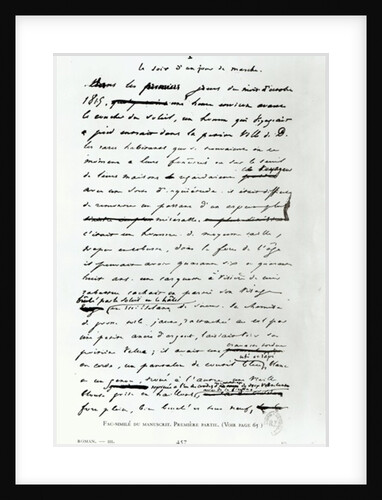 le soir d'un jour de marche.
Dans les premiers jours du mois d'octobre
1815, une heure environ avant
le coucher du soleil, un homme qui voyageait
à pied entrait dans la petite ville de D.
les rares habitants qui se trouvaient en ce
moment à leurs fenêtres ou sur le seuil
de leurs maisons regardaient ce voyageur
avec une sorte d'inquiétude. il était difficile
de rencontrer un passant d'un aspect plus
misérable.
c'était un homme de moyenne taille,
trapu et robuste, dans la force de l'âge
il pouvait avoir quarante six ou quarante
huit ans. une casquette à visière de cuir
rabattue cachait en partie son visage
brûlé par le soleil et le hâle
et ruisselant de sueur. sa chemise
de grosse toile jaune, rattachée au col par
une petite ancre d'argent, laissait voir sa
poitrine velue; il avait une cravate tordue
en corde, un pantalon de coutil bleu, usé
et râpé, blanc
à l'autre, une vieille
blouse grise en haillons,
fort plein, bien bouclé et tout neuf,
FAC-SIMILÉ DU MANUSCRIT. PREMIÈRE PARTIE. (VOIR PAGE 65.)
ROMAN. — III.
457